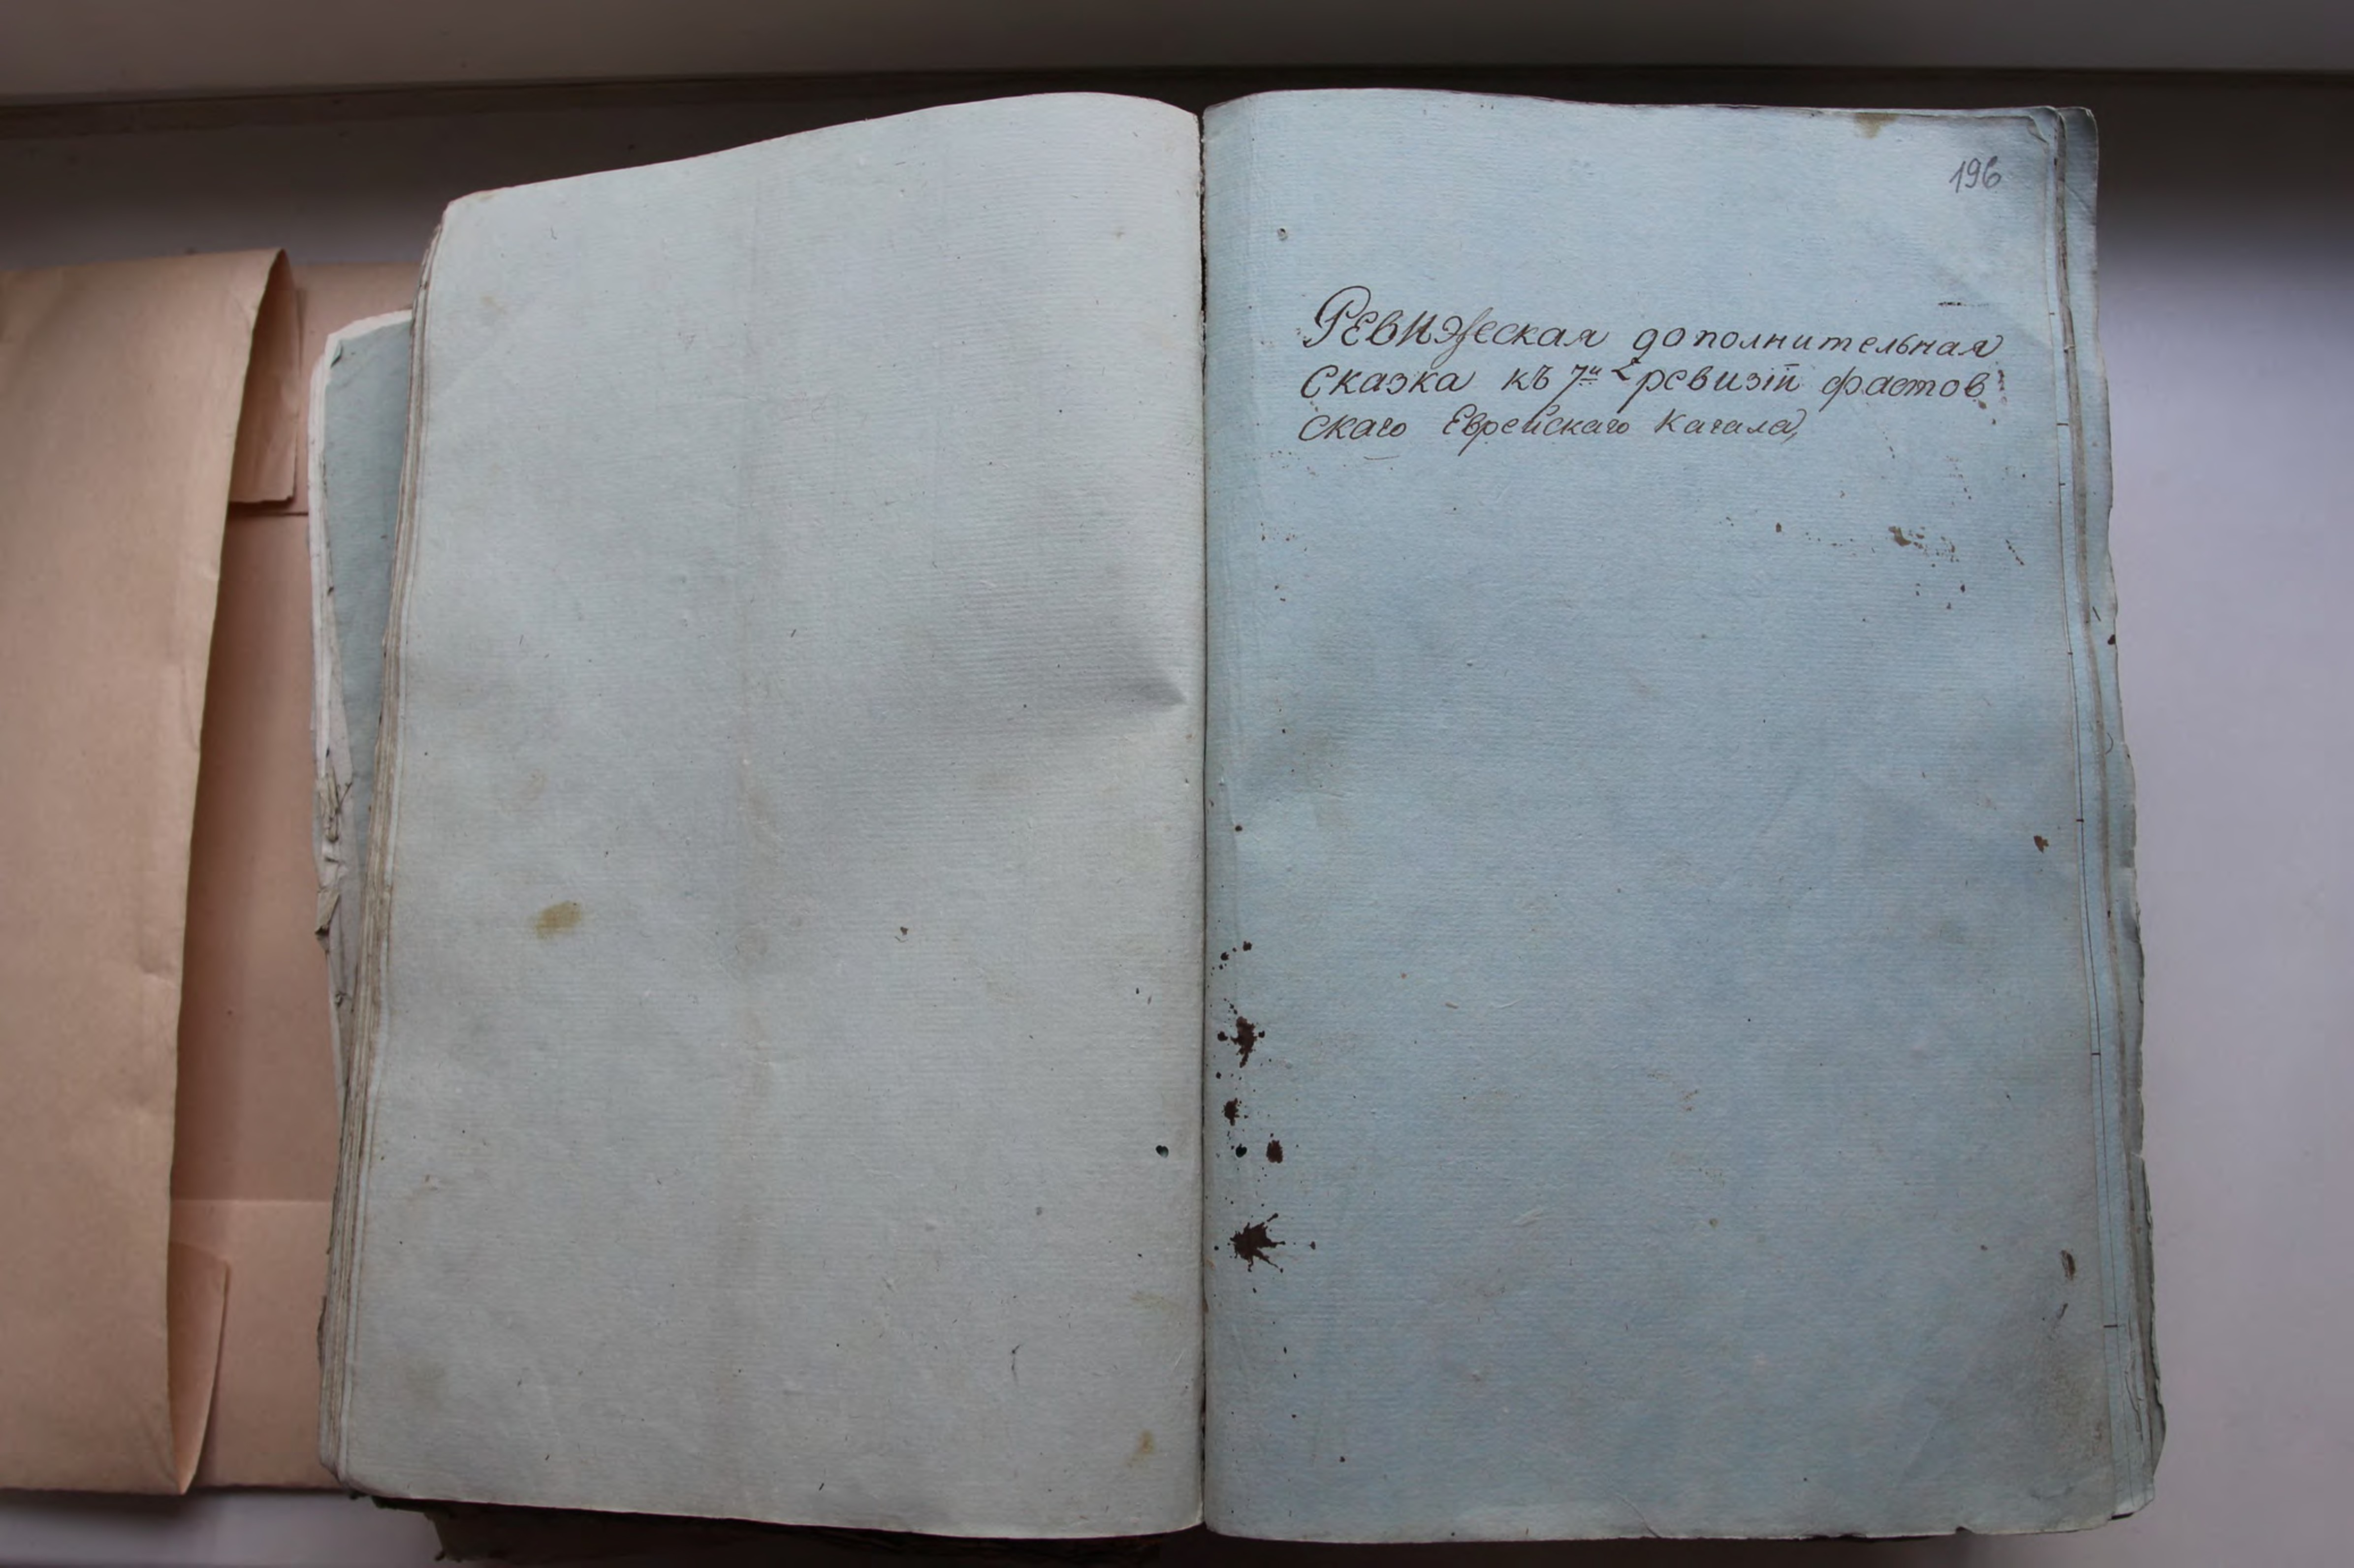 196
Ревизская дополнительная
Сказка къ 7й ревизіи фастов
скаго Еврейскаго Кагала,